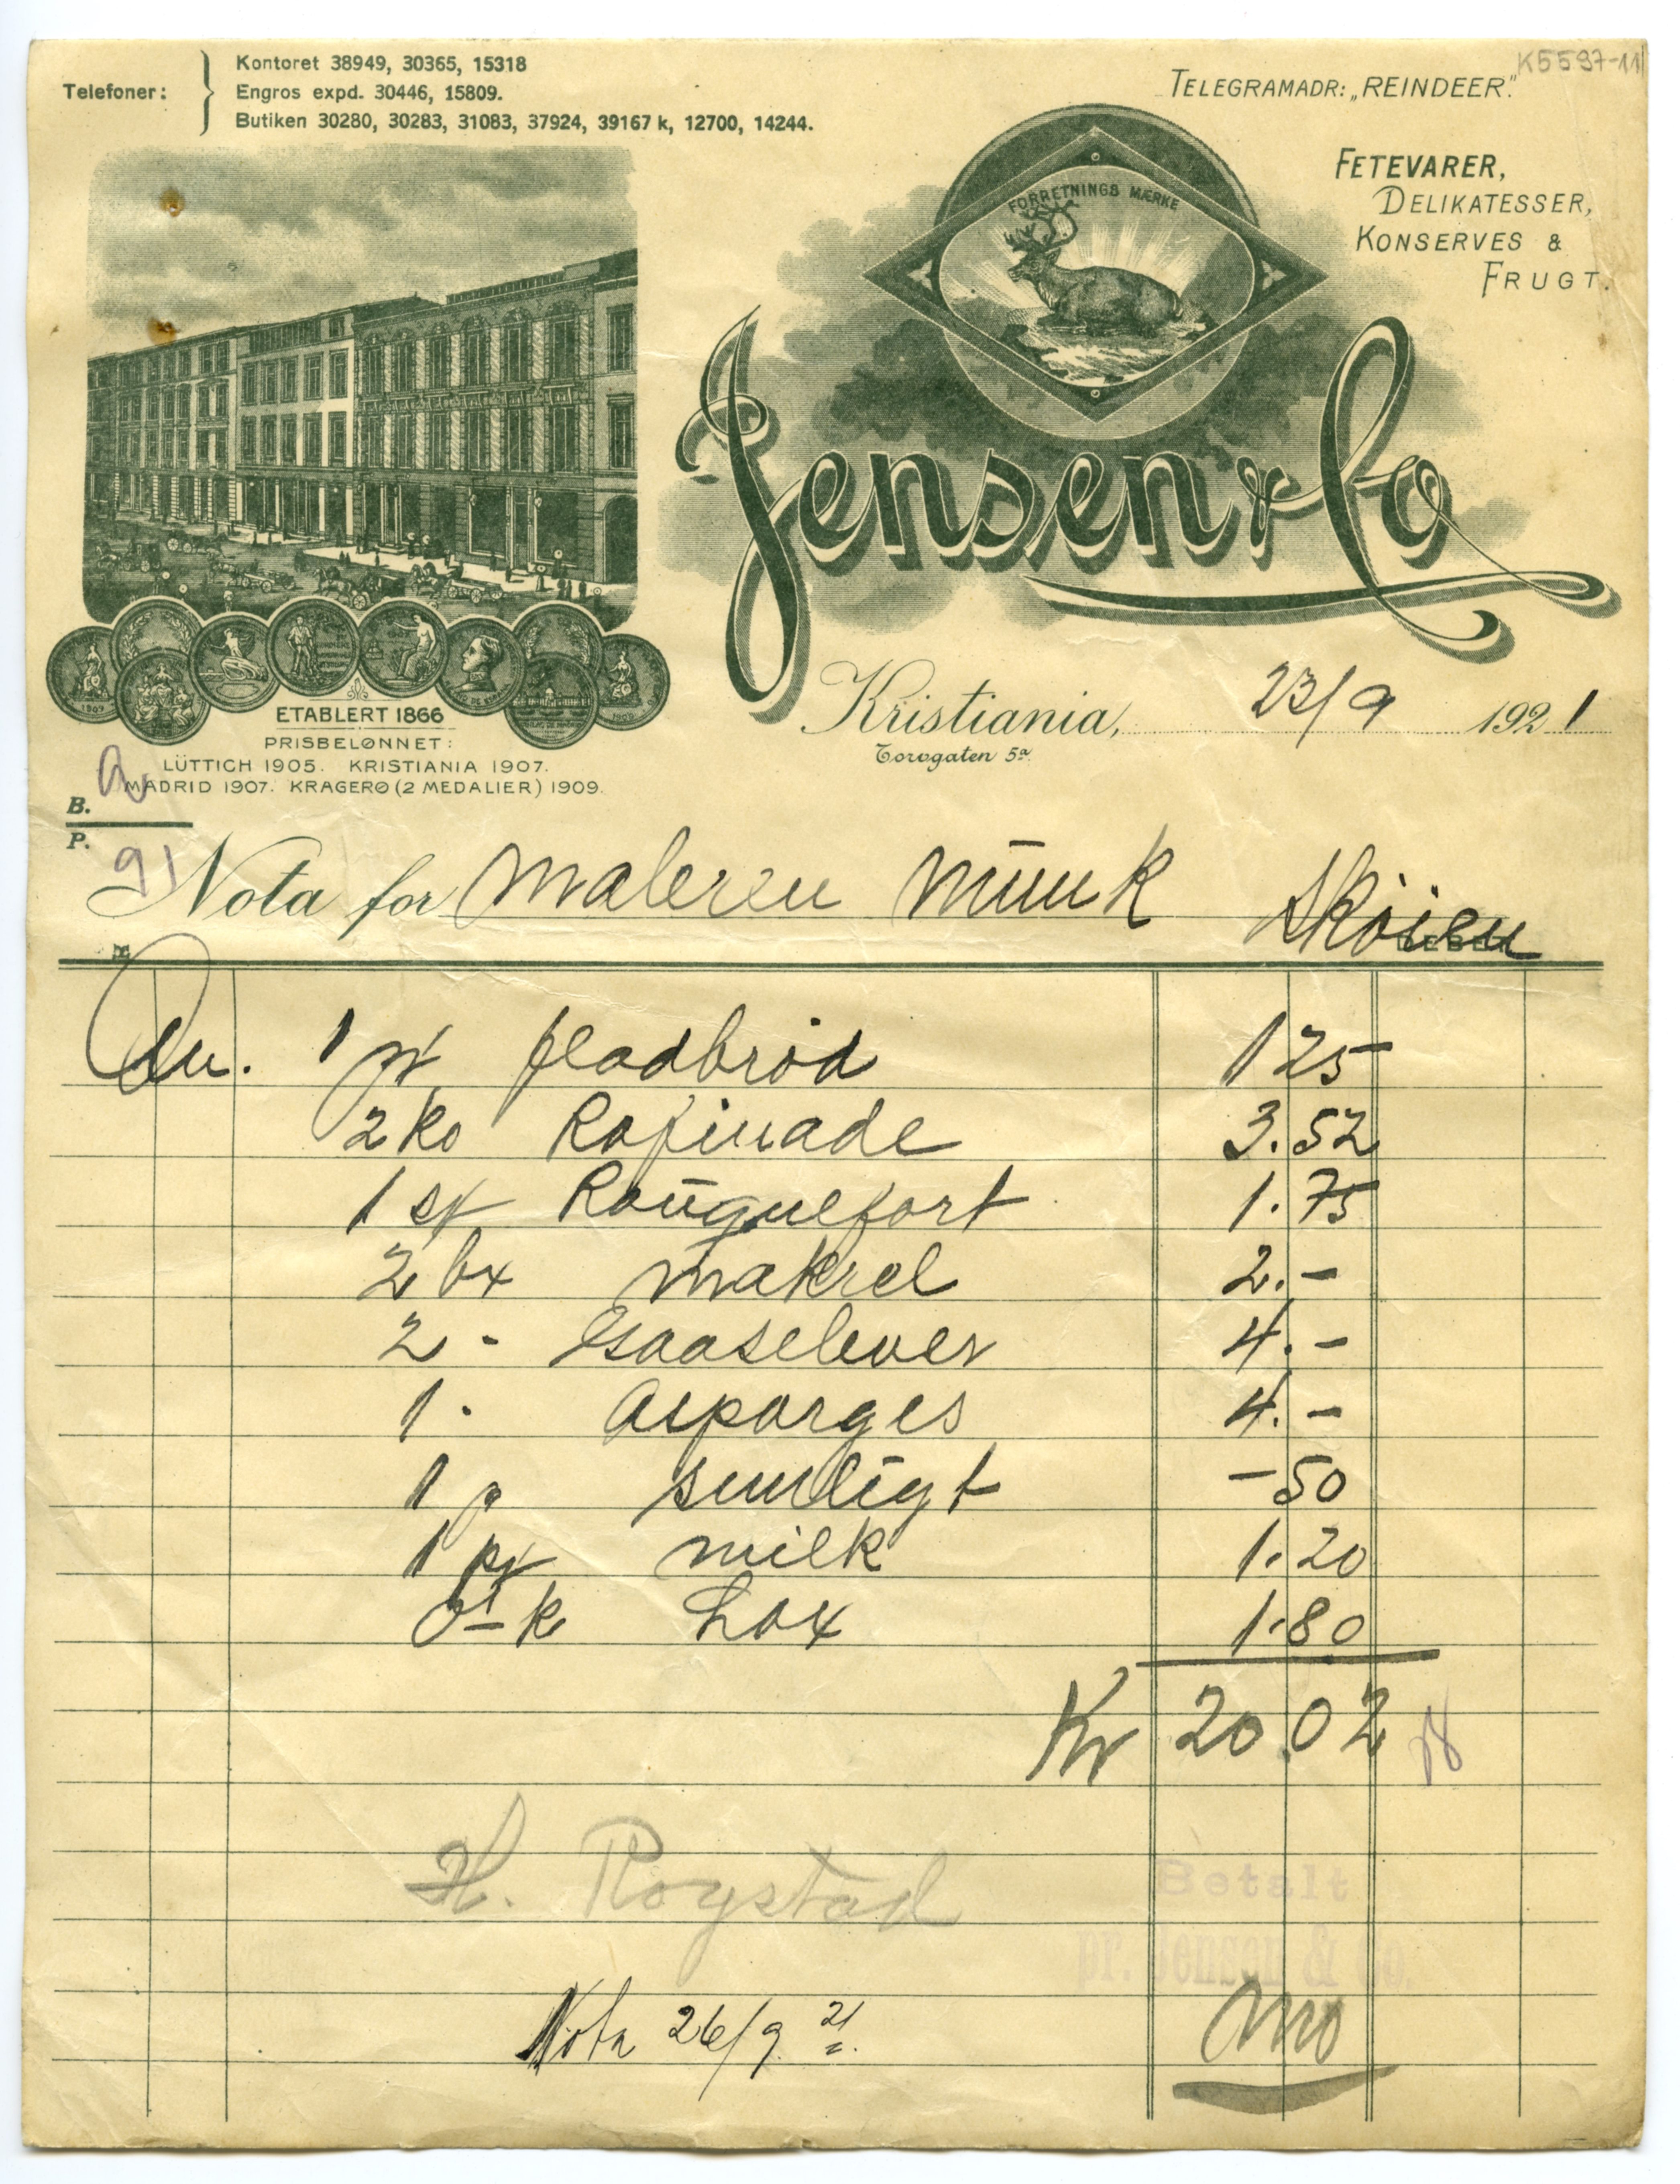 K5597-11
Telefoner:
Kontoret 38949, 30365, 15318
Engros expd. 30446, 15809.
Butiken 30280, 30283, 31083, 37924, 39167 k, 12700, 14244.
TELEGRAMADR: „REINDEER".
FETEVARER,
DELIKATESSER,
KONSERVES &
FRUGT.
FORRETNINGS MÆRKE
Jensen & Co
ETABLERT 1866
PRISBELØNNET:
LÜTTICH 1905. KRISTIANIA 1907.
MADRID 1907. KRAGERØ (2 MEDALIER) 1909.
Kristiania, 23/9 1921
Torvgaten 5a
B.
P. 91
Nota for Maleren Munk Skøien
DEBET
1 pk fladbrød 1 25
2 ko Rafinade 3.52
1 st Rouquefort 1.75
2 bx Makrel 2.-
2 - Gaaselever 4.-
1 - Asparges 4.-
1 p sunligt -50
1 pk milk 1.20
k Lax 1.80
Kr 20.02
H. Røystad
Betalt
pr. Jensen & Co.
Nota 26/9 21